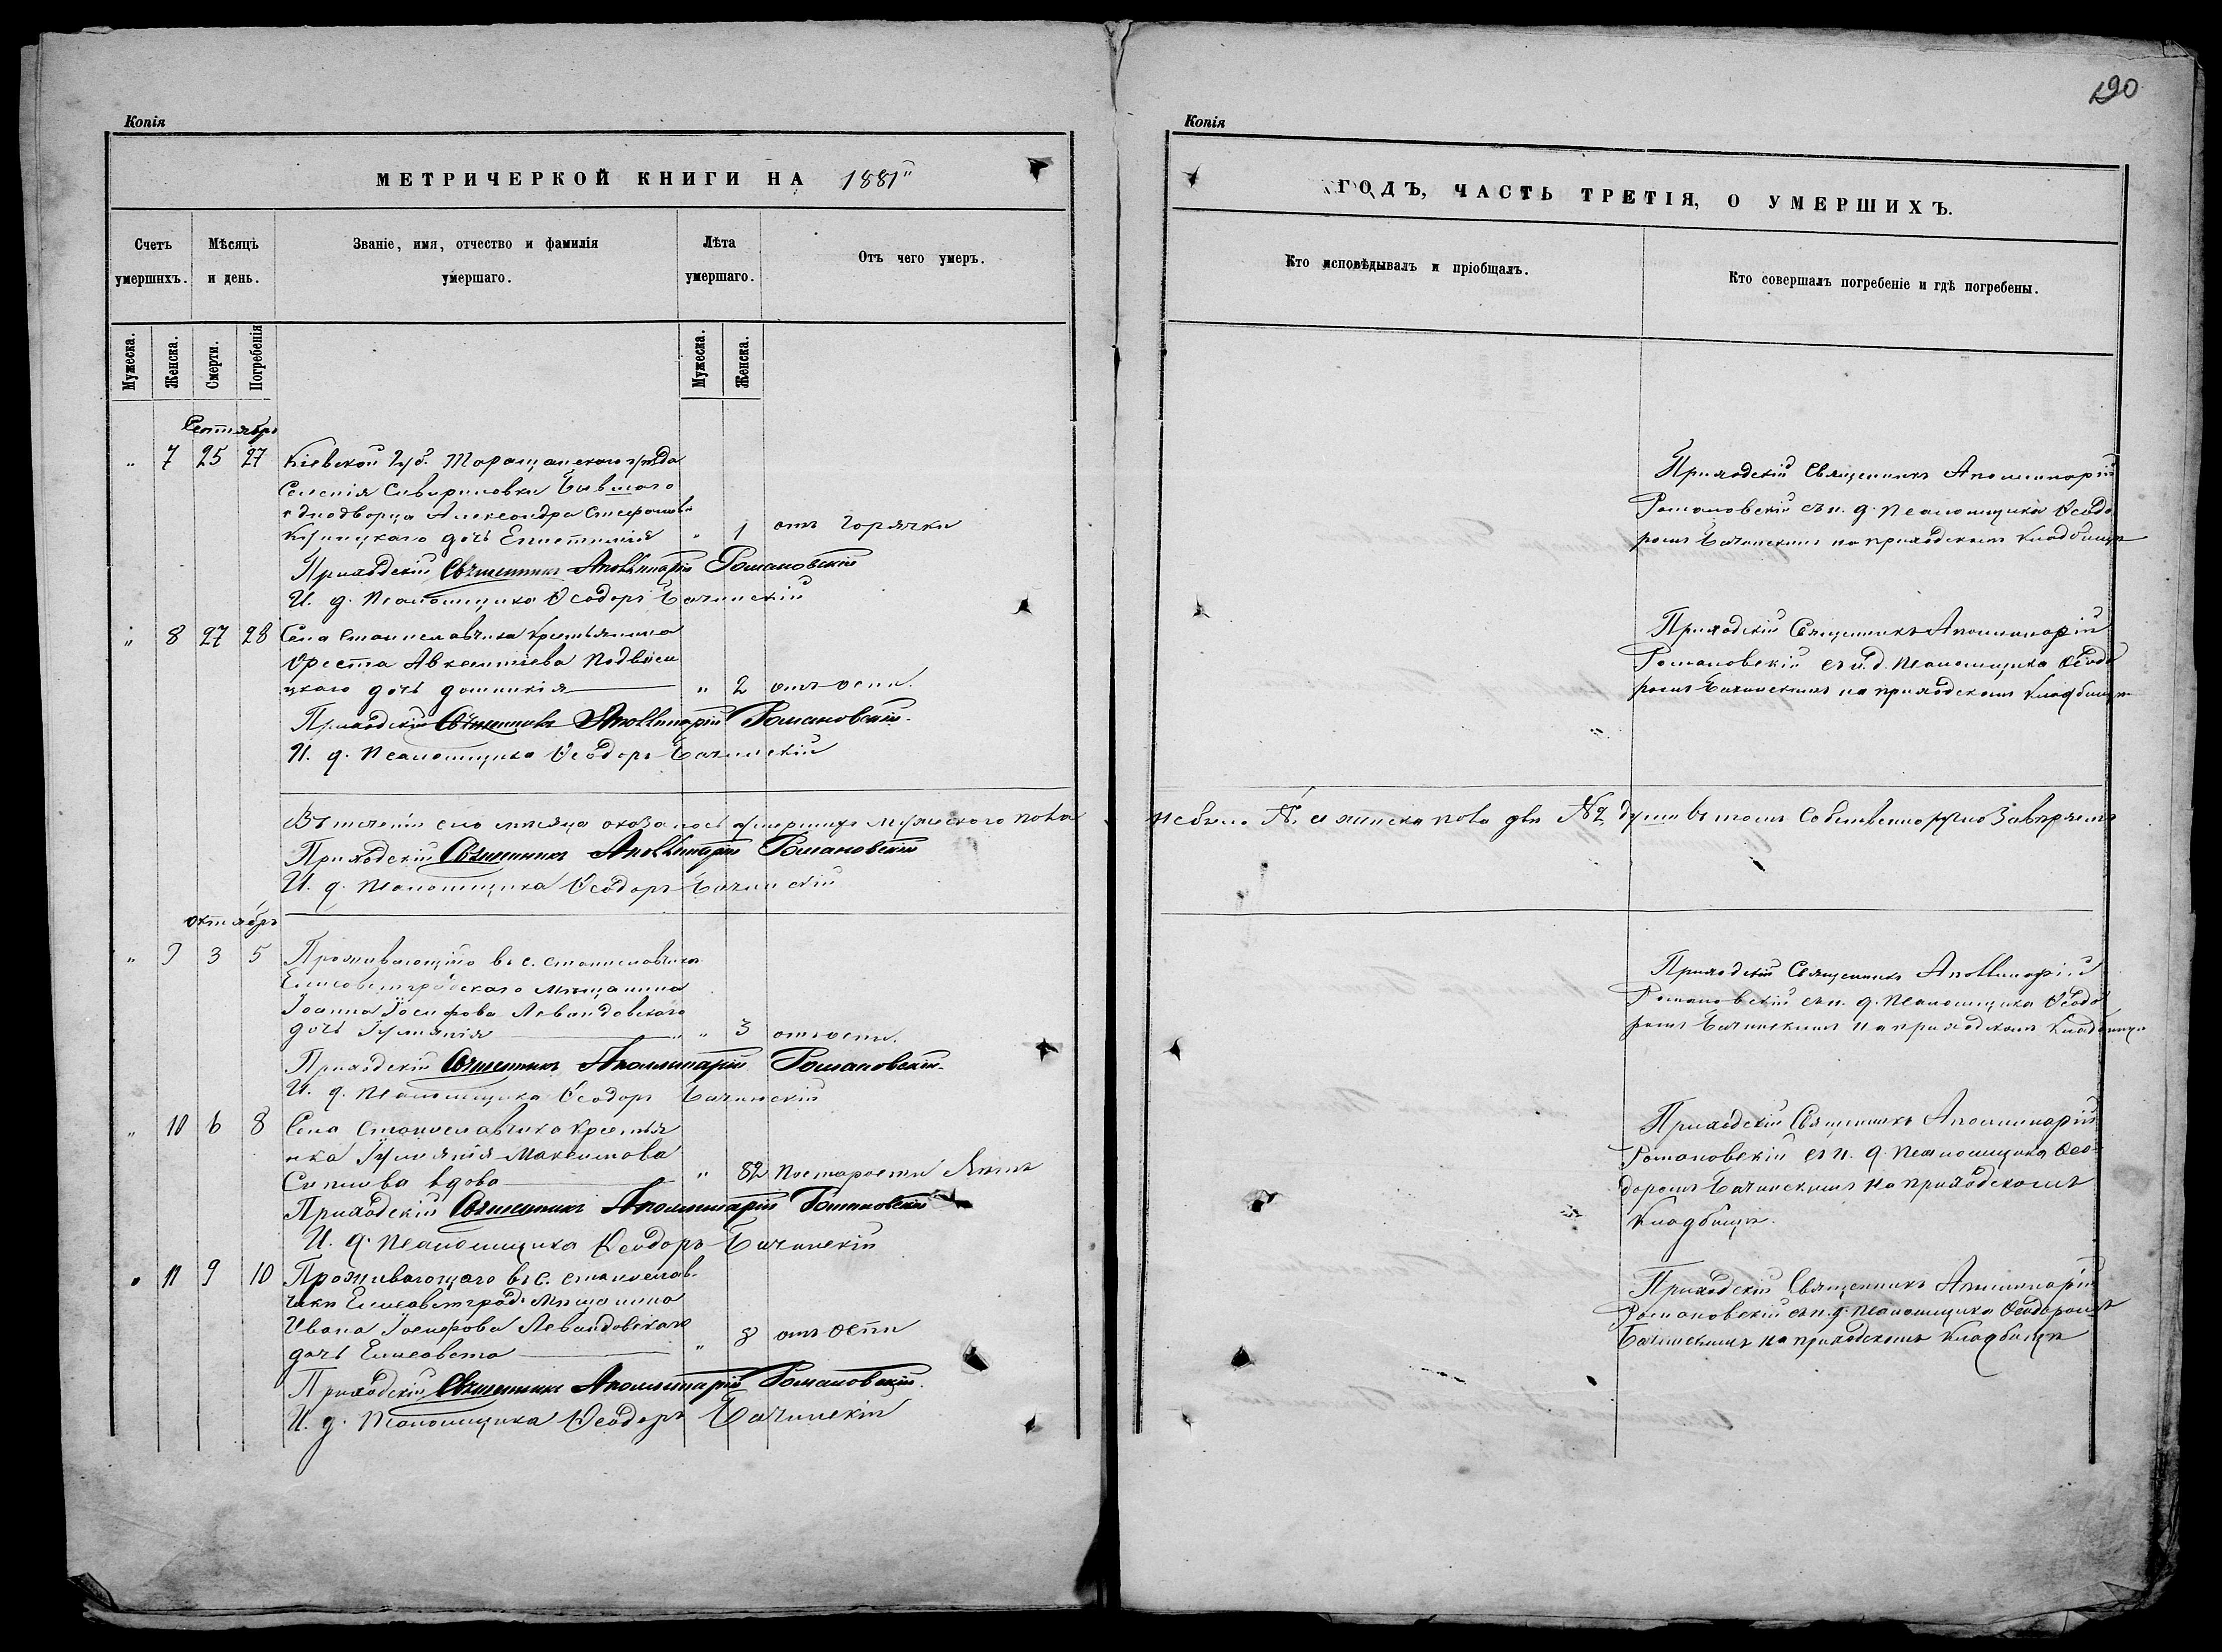 190
Копія
МЕТРИЧЕРКОЙ КНИГИ НА 1881
Счетъ умершихъ.
Мѣсяцъ и день.
Званіе, имя, отчество и фамилія умершаго.
Лѣта умершаго.
Отъ чего умеръ.
Мужеска.
Женска.
Смерти.
Погребенія
Мужеска.
Женска.
Сентябрь
" 7 25 27 Кіевской губ. Таращанскаго уѣзда
Селенія Сивариновки бывшаго
однодворца Александра Стефанова
дочь " 1 отъ горячки
Приходскій Священникъ Аполлинарій Романовскій
И. д. Псаломщика Ѳеодоръ Бачинскій
" 8 27 28 Села Станиславчика крестьянина
Ореста Авксентіева Подвысо
цкаго дочь Домникія " 2 отъ оспы.
Приходскій Священникъ Аполлинарій Романовскій.
И. д. Псаломщика Ѳеодоръ Бачинскій
Въ теченіи сего мѣсяца оказалось умершихъ мужескаго пола
Приходскій Священникъ Аполлинарій Романовскій
И. д. Псаломщика Ѳеодоръ Бачинскій
Октябрь
" 9 3 5 Проживающаго въ с. Станиславчикѣ
Елисаветградскаго мѣщанина
Іоанна Іосифова Левандовскаго
дочь Іуліанія " 3 отъ оспы.
Приходскій Священникъ Аполлинарій Романовскій.
И. д. Псаломщика Ѳеодоръ Бачинскій
" 10 6 8 Села Станиславчика крестья
нка Іуліанія Максимова
вдова " 82 По старости лѣтъ
Приходскій Священникъ Аполлинарій Романовскій
И. д. Псаломщика Ѳеодоръ Бачинскій
" 11 9 10 Проживающаго въ с. Станислав-
чикѣ Елисаветград. мѣщанина
Ивана Іосифова Левандовскаго
дочь Елисавета " 8 отъ оспы
Приходскій Священникъ Аполлинарій Романовскій.
И. д. Псаломщика Ѳеодоръ Бачинскій
Копія
ГОДЪ, ЧАСТЬ ТРЕТІЯ, О УМЕРШИХЪ.
Кто исповѣдывалъ и пріобщалъ.
Кто совершалъ погребеніе и гдѣ погребены.
Приходскій Священникъ Аполлинарій
Романовскій съ и. д. Псаломщика Ѳеодо
ромъ Бачинскимъ на приходскомъ кладбищѣ
Приходскій Священникъ Аполлинарій
Романовскій съ и. д. Псаломщика Ѳеодо
ромъ Бачинскимъ на приходскомъ кладбищѣ
небыло и женска пола двѣ №2 души въ томъ собственноручно завѣряемъ
Приходскій Священникъ Аполлинарій
Романовскій съ и. д. Псаломщика Ѳеодо
ромъ Бачинскимъ на приходскомъ кладбищѣ
Приходскій Священникъ Аполлинарій
Романовскій съ и. д. Псаломщика Ѳео-
доромъ Бачинскимъ на приходскомъ
кладбищѣ.
Приходскій Священникъ Аполлинарій
Романовскій съ и. д. Псаломщика Ѳеодоромъ
Бачинскимъ на приходскомъ кладбищѣ